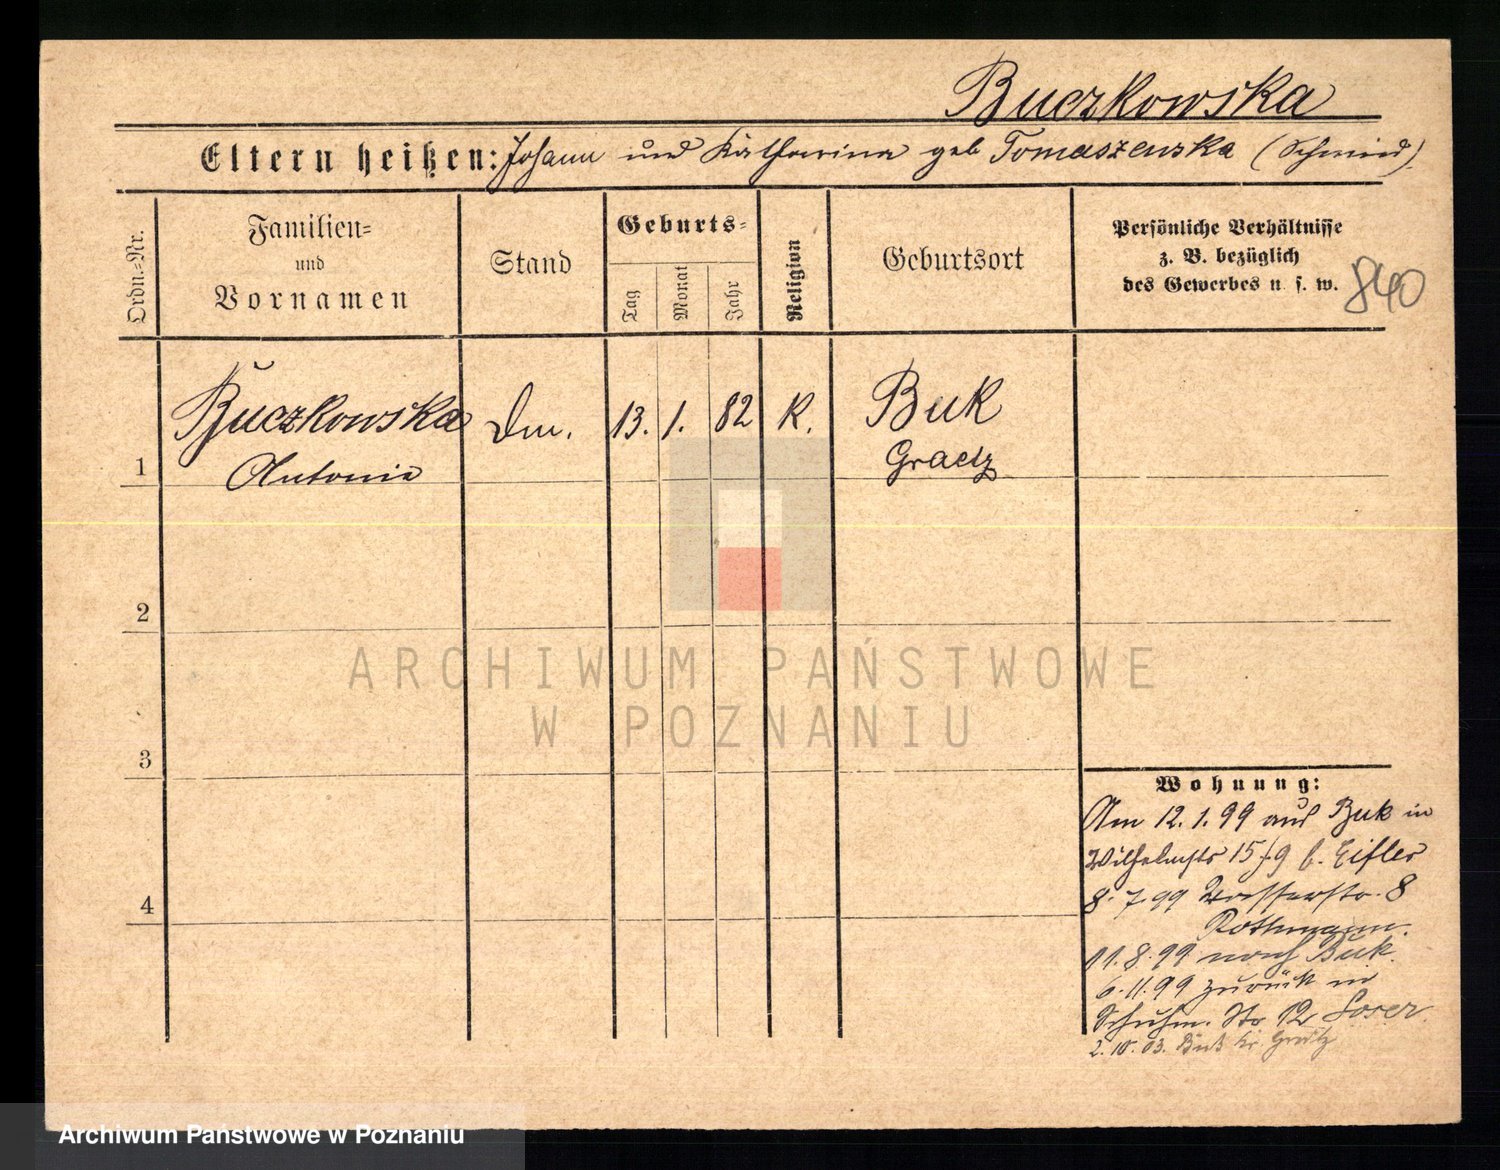 Buczkowska
Eltern heißen: Johann und Katharina geb Tomaszewska (Schmied)
Ordn.-Nr.
Familien-
und
Vornamen
Stand
Geburts-
Tag
Monat
Jahr
Religion
Geburtsort
Persönliche Verhältnisse
z. B. bezüglich
des Gewerbes u. s. w.
840
1
Buczkowska
Antonie
Dm.
13.
1.
82
K.
Buk
Graetz
2
ARCHIWUM PAŃSTWOWE
W POZNANIU
3
4
Wohnung:
Am 12.1.99 aus Buk in
Wilhelmstr 15/I9 b. Eifler
8.7.99 Wasserstr. 8
Rothmann.
11.8.99 nach Buk.
6.11.99 zurück in
Schuhm. Str 12 Loser
2.10.03. Buk Kr. Grätz
Archiwum Państwowe w Poznaniu